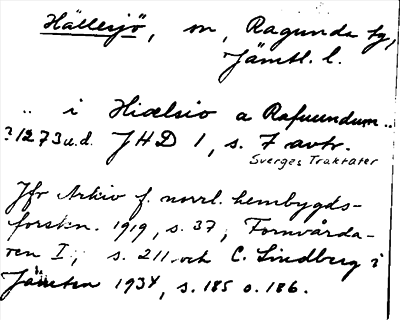 Hällesjö, sn, Ragunda tg,
Jämtl. l.
.. i Hiælsio a Rafuundum ..
?1273 u.d. JHD 1, s. 7 avtr.
Sverges Traktater
Jfr Arkiv f. norrl. hembygds-
forskn. 1919, s. 37, Fornvårda-
ren I, s. 211 och C. Lindberg i
Jämten 1934, s. 185 o. 186.